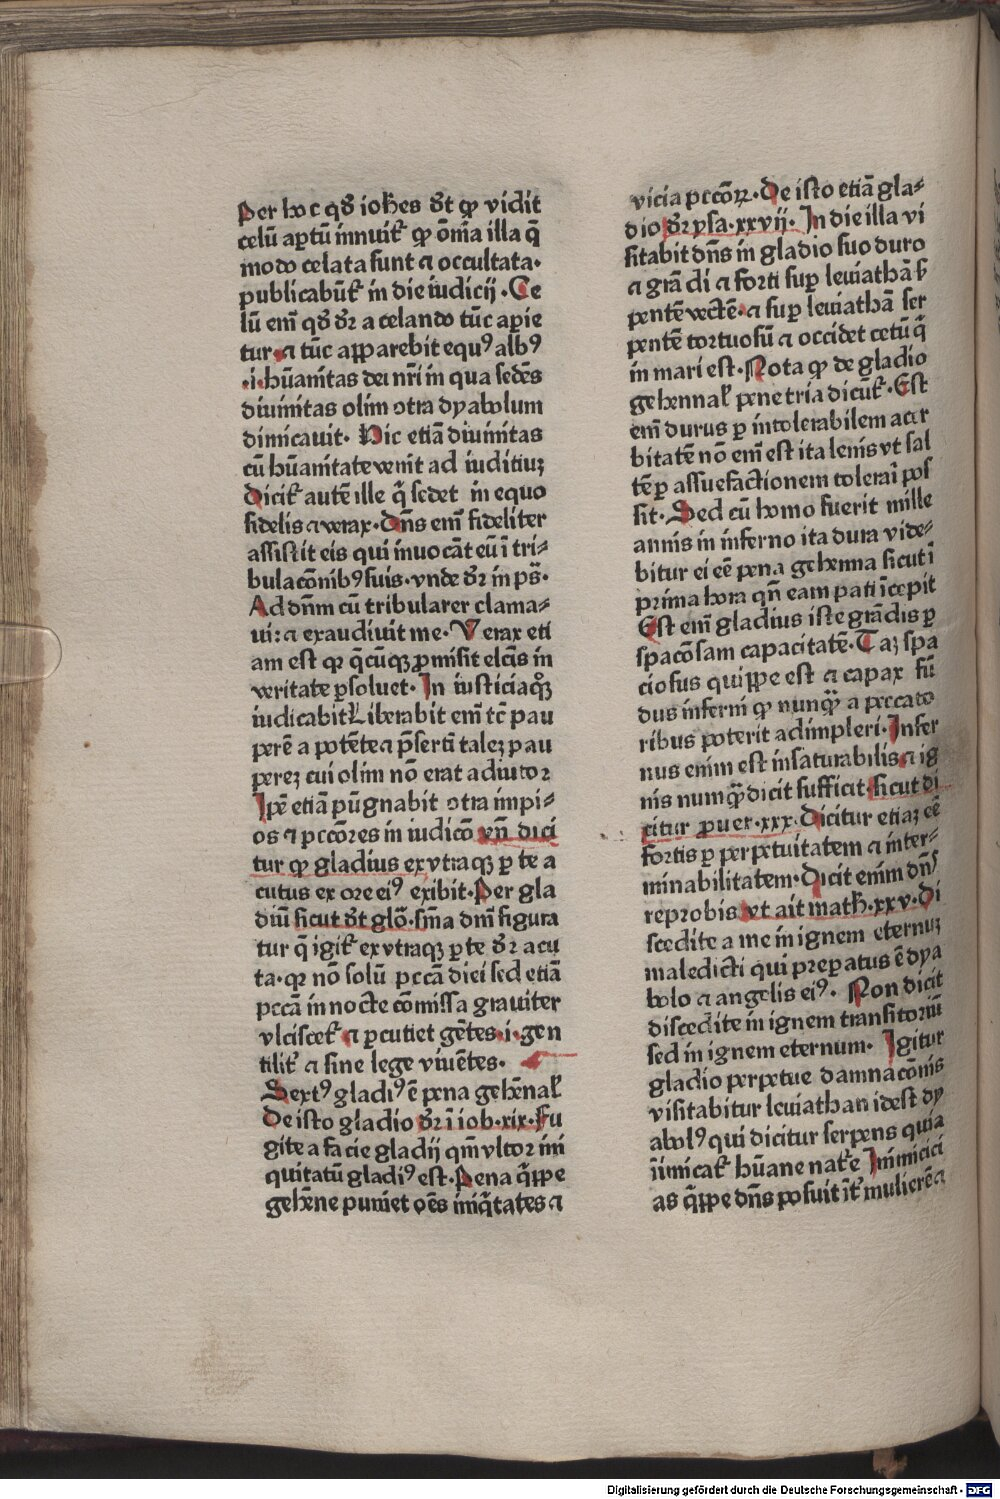 Per hoc qđ ioħes dt ꝙ vidit
celū aꝑtū innuitʳ ꝙ om̄ia illa q̄
modo celata sunt ⁊ occultata·
publicabūtʳ in die iudicij·Ce
lū eni̅ qđ dr̄ a celando tūc aꝑie
tur·⁊ tūc apparebit equꝰ albꝰ
·i·hūanitas dei nr̄i in qua sedēs
diuinitas olim ɔtra dyabolum
dimicauit· Hic etiā diuinitas
cū hūanitate venit ad iuditiuꝫ
Dicitʳ autē ille q̄ sedet in equo
fidelis ⁊ verax·Dn̄s eni̅ fideliter
assistit eis qui inuocāt eū ī tri⸗
bulacōnibꝰ suis·vnde dr̄ in pš·
Ad dn̄m cū tribularer clama⸗
ui:⁊ exaudiuit me·Verax eti
am est qꝛ q̄cūqꝫ ꝓmisit elc̄is in
veritate ꝑsoluet·In iusticia qꝫ
iudicabit Liberabit eni̅ tc̄ pau
perē a potēte ⁊ p̄serti̅ talеꝫ pau
pereꝫ cui olim nō erat adiutor
Ip̄e etiā pūgnabit ɔtra impi⸗
os ⁊ pcc̄ōres in iudicō vn̄ dici
tur ꝙ gladius ex vtraqꝫ ꝑte a
cutus ex ore eiꝰ exibit·Per gla
diū sicut dt glō·sn̄ia dn̄i figura
tur q̄ igitʳ ex vtraqꝫ ꝑte dr̄ acu
ta·qꝛ nō solū pccā diei sed etiā
pccā in nocte cōmissa grauiter
vlciscetʳ ⁊ ꝑcutiet gētes·i·gen
tilitʳ ⁊ sine lege viuētes·
Sextꝰ gladiꝰ ē pena gehēnał
De isto gladio dr̄ ī iob·xix·Fu
gite a facie gladij qm̄ vltor ini
quitatū gladiꝰ est·Pena q̄ppe
gehēne puniet oēs iniq̄tates ⁊
vicia pcc̄ōꝝ·De isto etiā gla⸗
dio dr̄ ysa·xxvij·In die illa vi
sitabit dn̄s in gladio suo duro
⁊ grādi ⁊ forti suꝑ leuiathā ẜ
pentē vectē·⁊ suꝑ leuiathā ser
pentē tortuosū ⁊ occidet cetū q̄
in mari est·Nota ꝙ de gladio
gehennał pene tria dicūtʳ·Est
eni̅ durus ꝑ intolerabilem acer
bitatē nō eni̅ est ita lenis vt sal
tē ꝑ assuefactionem tolerari pos
sit·Sed cū homo fuerit mille
annis in inferno ita dura vide⸗
bitur ei eē pena gehenna sicut ī
prima hora qn̄ eam pati īcepit
Est eni̅ gladius iste grādis ꝑ
spacōsam capacitatē·Taꝫ spa
ciosus quippe est ⁊ capax fū
dus inferni ꝙ nunqᷓ a peccato
ribus poterit adimpleri·Infer
nus enim est insaturabilis ⁊ ig
nis numqᷓ dicit sufficit sicut di
citur ꝓuer·xxx·Dicitur etiaꝫ eē
fortis ꝑ perpetuitatem ⁊ inter⸗
minabilitatem·Dicit enim dn̄s
reprobis vt ait math·xxv·Di
scedite a me in ignem eternuꝫ
maledicti qui preparatus ē dya
bolo ⁊ angelis eiꝰ· Non dicit
discedite in ignem transitoriū
sed in ignem eternum· Igitur
gladio perpetue damnacōnis
visitabitur leuiathan idest dy
abolꝰ qui dicitur serpens quia
īimicatʳ hūane nat̄e Inimicici
as q̄ppe dn̄s posuit īt̄ mulierē ⁊
Digitalisierung gefördert durch die Deutsche Forschungsgemeinschaft - DFG